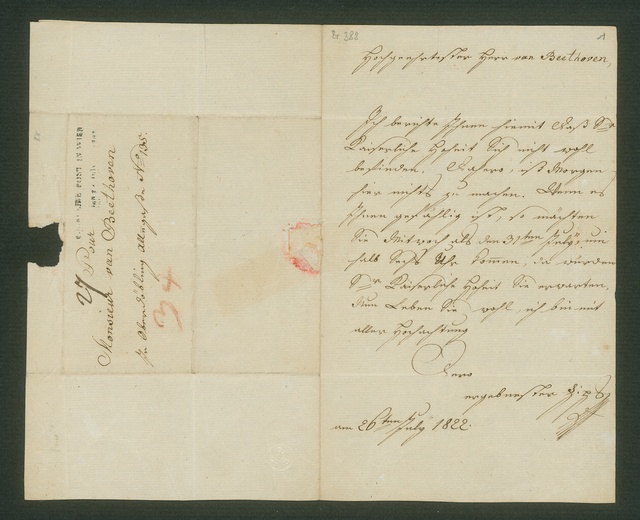 Br 388
1
Hochgeehrtester Herr van Beethoven,
Ich berichte Ihnen hiemit daß Sr
Kaiserliche Hoheit Sich nicht wohl
befinden. Dahero, ist Morgen
hier nichts zu machen. Wenn es
Ihnen gefählig ist, so möchten
Sie Mitwoch als den 31ten July, um
halb Sechs Uhr kommen, da würden
Sr Kaiserliche Hoheit Sie erwarten.
Nun Leben Sie wohl, ich bin mit
aller Hochachtung
Dero
ergebnester
am 26ten July 1822.
POST IN WIEN
Pour
Monsieur van Beethoven
in Oberdöbling Alleegasse No 135.